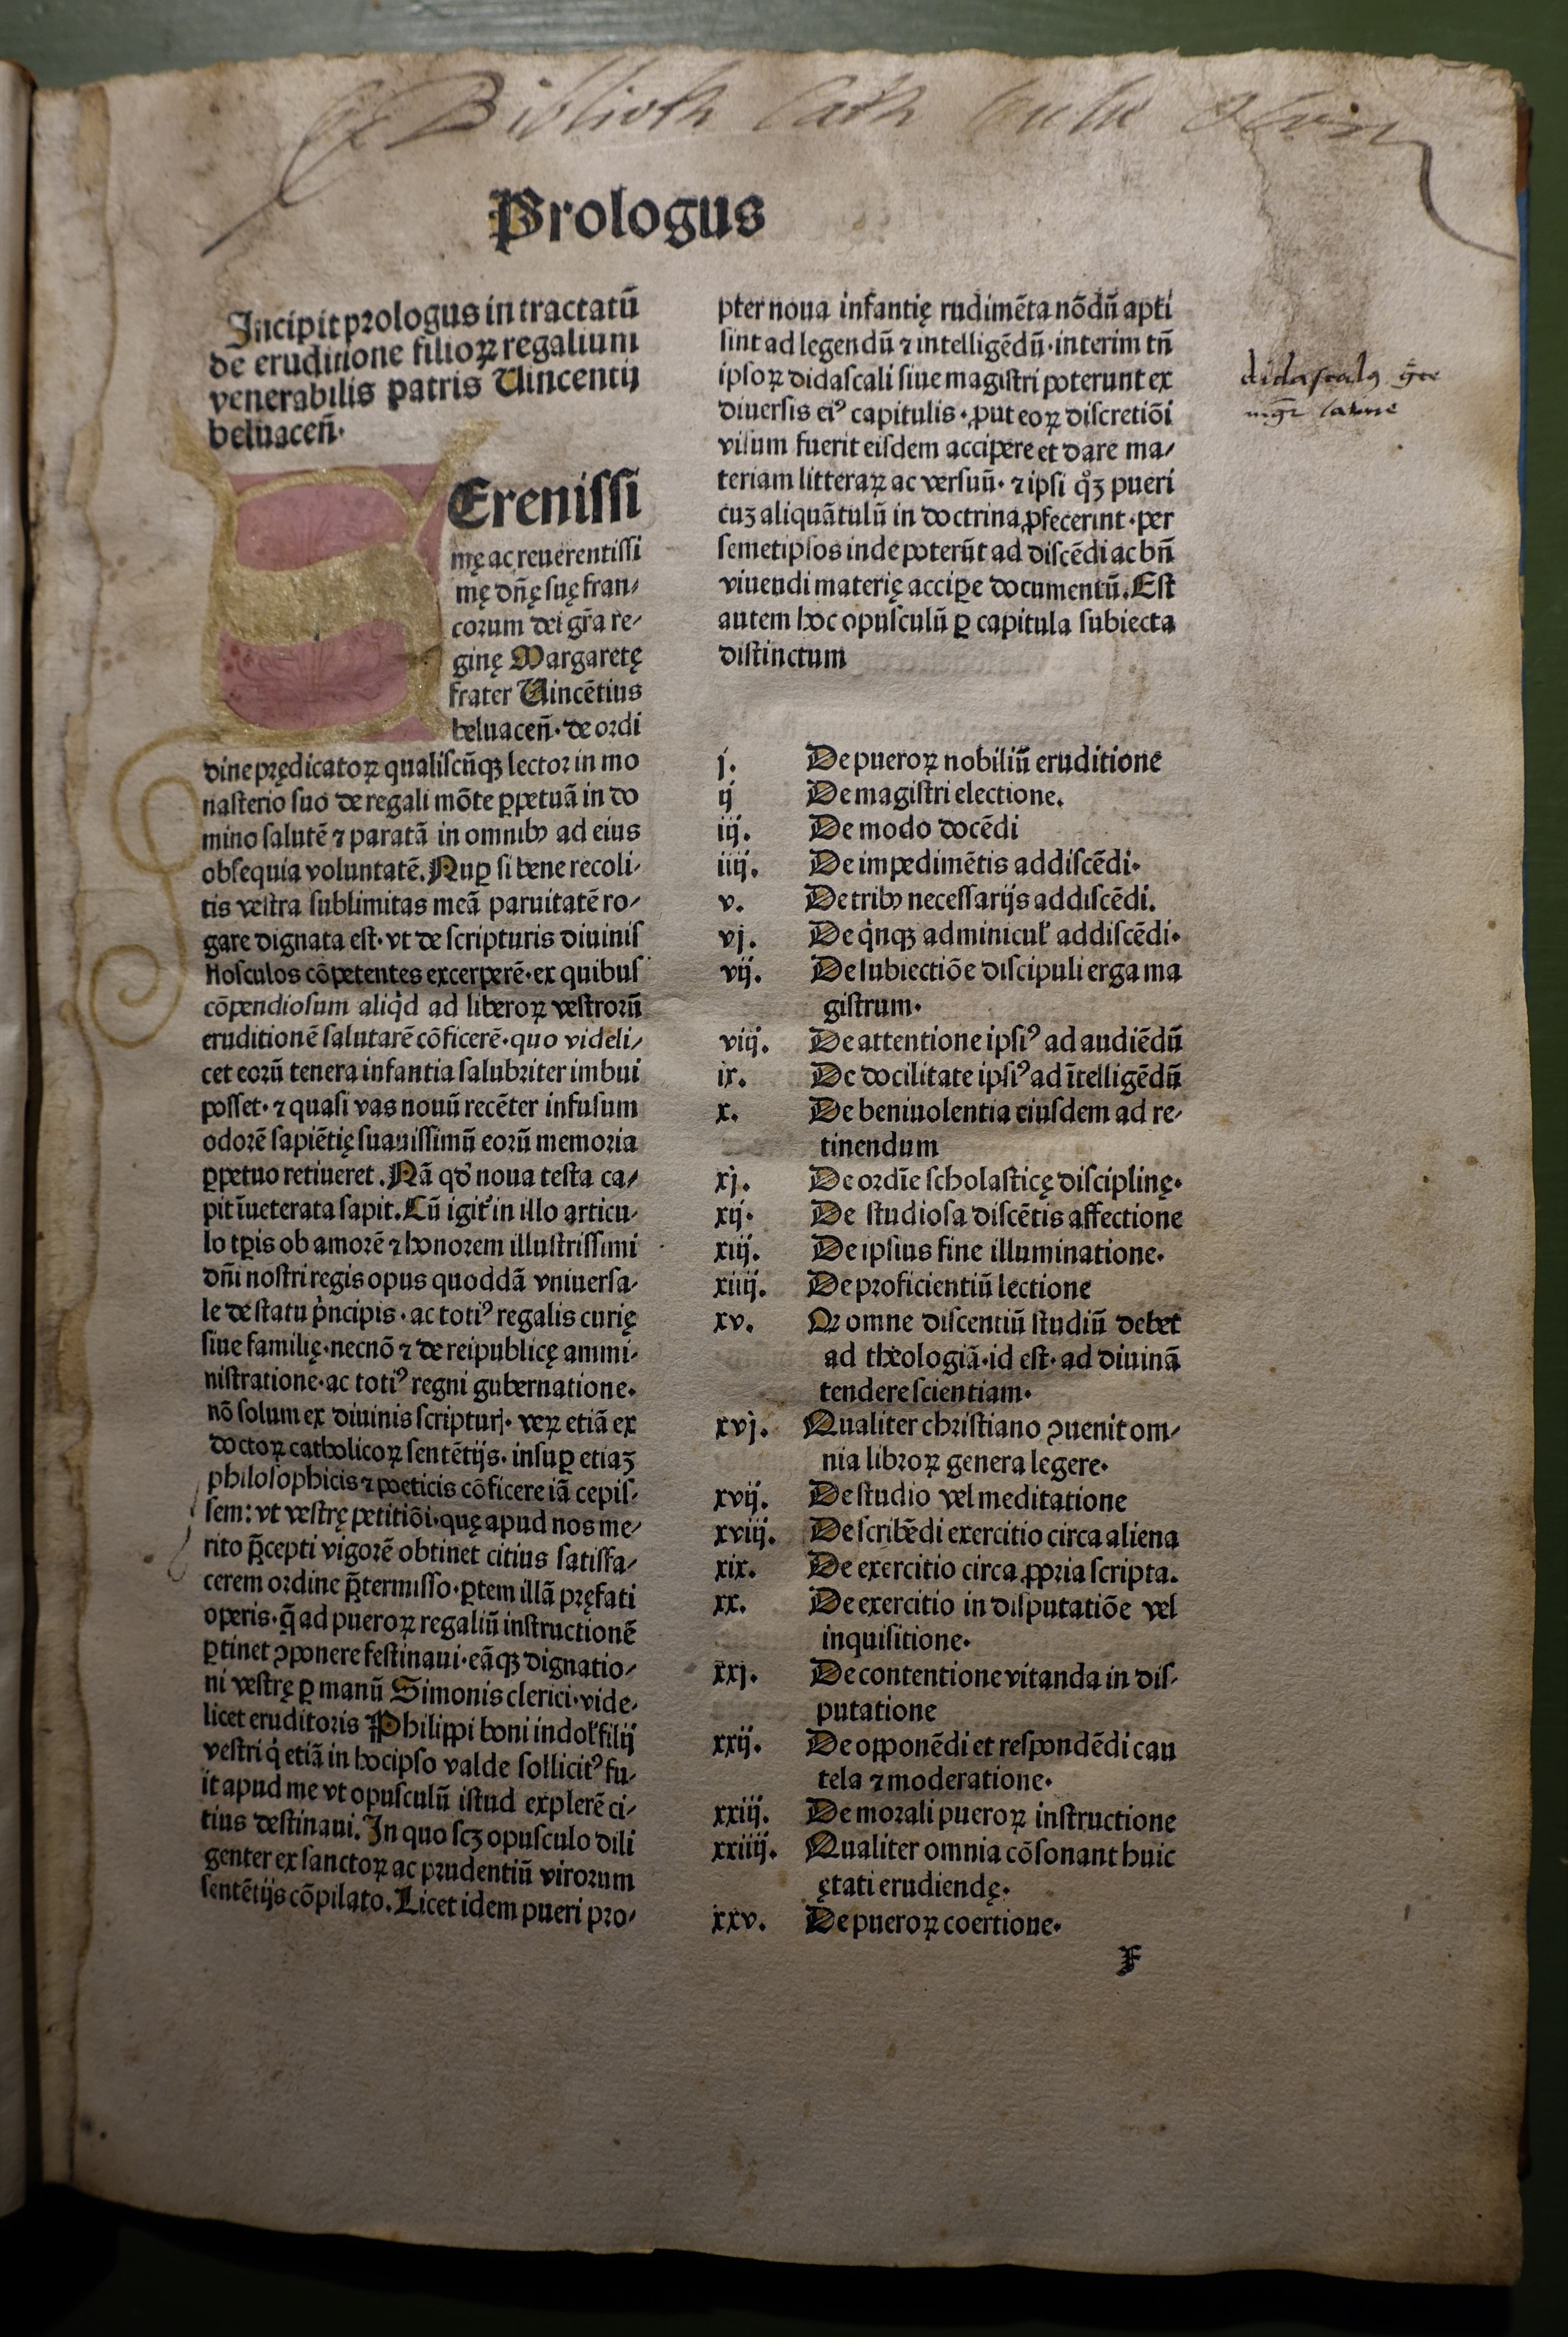 Ex Biblioth Cath
Prologus
Incipit prologus in tractatū
de eruditione filioꝝ regalium
venerabilis patris Uincentij
beluaceñ·
SErenissi
mę ac reuerentissi
mę dñę suę fran⸗
corum dei gr̄a re⸗
ginę Margaretę
frater Uincētius
beluaceñ· de ordi
dine prędicatoꝝ qualiscūqꝫ lector in mo
nasterio suo de regali mōte ꝑpetuā in do
mino salutē ⁊ paratā in omnibꝰ ad eius
obsequia voluntatē. Nuꝑ si bene recoli⸗
tis vestra sublimitas meā paruitatē ro⸗
gare dignata est· vt de scripturis diuinis
flosculos cōpetentes excerperē· ex quibus
cōpendiosum aliqͥd ad liberoꝝ vestrorū
eruditionē salutarē cōficerē· quo videli⸗
cet eorū tenera infantia salubriter imbui
posset· ⁊ quasi vas nouū recēter infusum
odorē sapiētię suauissimū eorū memoria
ꝑpetuo retiueret. Nā qd̓ noua testa ca⸗
pit īueterata sapit. Cū igit᷑ in illo articu⸗
lo tꝑis ob amorē ⁊ honorem illustrissimi
dñi nostri regis opus quoddā vniuersa⸗
le de statu pͥncipis· ac totiꝰ regalis curię
siue familię· necnō ⁊ de reipublicę ammi⸗
nistratione· ac totiꝰ regni gubernatione·
nō solum ex diuinis scripturꝭ· veꝝ etiā ex
doctoꝝ catholicoꝝ sentētijs· insuꝑ etiaꝫ
philosophicis ⁊ poeticis cōficere iā cepis⸗
sem: vt vestrę petitiōi· quę apud nos me⸗
rito p̄cepti vigorē obtinet citius satisfa⸗
cerem ordine p̄termisso· ꝑtem illā pręfati
operis· q̄ ad pueroꝝ regaliū instructionē
ꝑtinet ꝯponere festinaui· eāqꝫ dignatio⸗
ni vestrę ꝑ manū Simonis clerici· vide⸗
licet eruditoris Philippi boni indoł filij
vestri qͥ etiā in hoc ipso valde sollicitꝰ fu⸗
it apud me vt opusculū istud explerē ci⸗
tius destinaui. In quo scꝫ opusculo dili
genter ex sanctoꝝ ac prudentiū virorum
sentētijs cōpilato. Licet idem pueri pro⸗
pter noua infantię rudimēta nōdū apti
sint ad legendū ⁊ intelligēdū· interim tñ
ipsoꝝ didascali siue magistri poterunt ex
diuersis eiꝰ capitulis· ꝓut eoꝝ discretiōi
visum fuerit eisdem accipere et dare ma⸗
teriam litteraꝝ ac versuū· ⁊ ipsi qͦꝫ pueri
cuꝫ aliquātulū in doctrina ꝓfecerint· per
semetipsos inde poterūt ad discēdi ac bñ
viuendi materię acciꝑe documentū. Est
autem hoc opusculū ꝑ capitula subiecta
distinctum
didascalꝰ gͬce
mgr̄ latine
j. De pueroꝝ nobiliū eruditione
ij De magistri electione.
iij. De modo docēdi
iiij. De impedimētis addiscēdi·
v. De tribꝰ necessarijs addiscēdi.
vj. De qͥnqꝫ adminicuł addiscēdi·
vij. De subiectiōe discipuli erga ma
gistrum·
viij. De attentione ipsiꝰ ad audiēdū
ix. De docilitate ipsiꝰ ad ītelligēdū
x. De beniuolentia eiusdem ad re⸗
tinendum
xj. De ordīe scholasticę disciplinę·
xij· De studiosa discētis affectione
xiij. De ipsius fine illuminatione·
xiiij. De proficientiū lectione
xv. Qꝛ omne discentiū studiū debet
ad theologiā· id est· ad diuinā
tendere scientiam·
xvj. Qualiter christiano ꝯuenit om⸗
nia libroꝝ genera legere·
xvij. De studio vel meditatione
xviij. De scribēdi exercitio circa aliena
xix. De exercitio circa ꝓpria scripta.
xx. De exercitio in disputatiōe vel
inquisitione·
xxj. De contentione vitanda in dis⸗
putatione
xxij. De opponēdi et respondēdi cau
tela ⁊ moderatione·
xxiij. De morali pueroꝝ instructione
xxiiij. Qualiter omnia cōsonant huic
ętati erudiendę·
xxv. De pueroꝝ coertione·
F